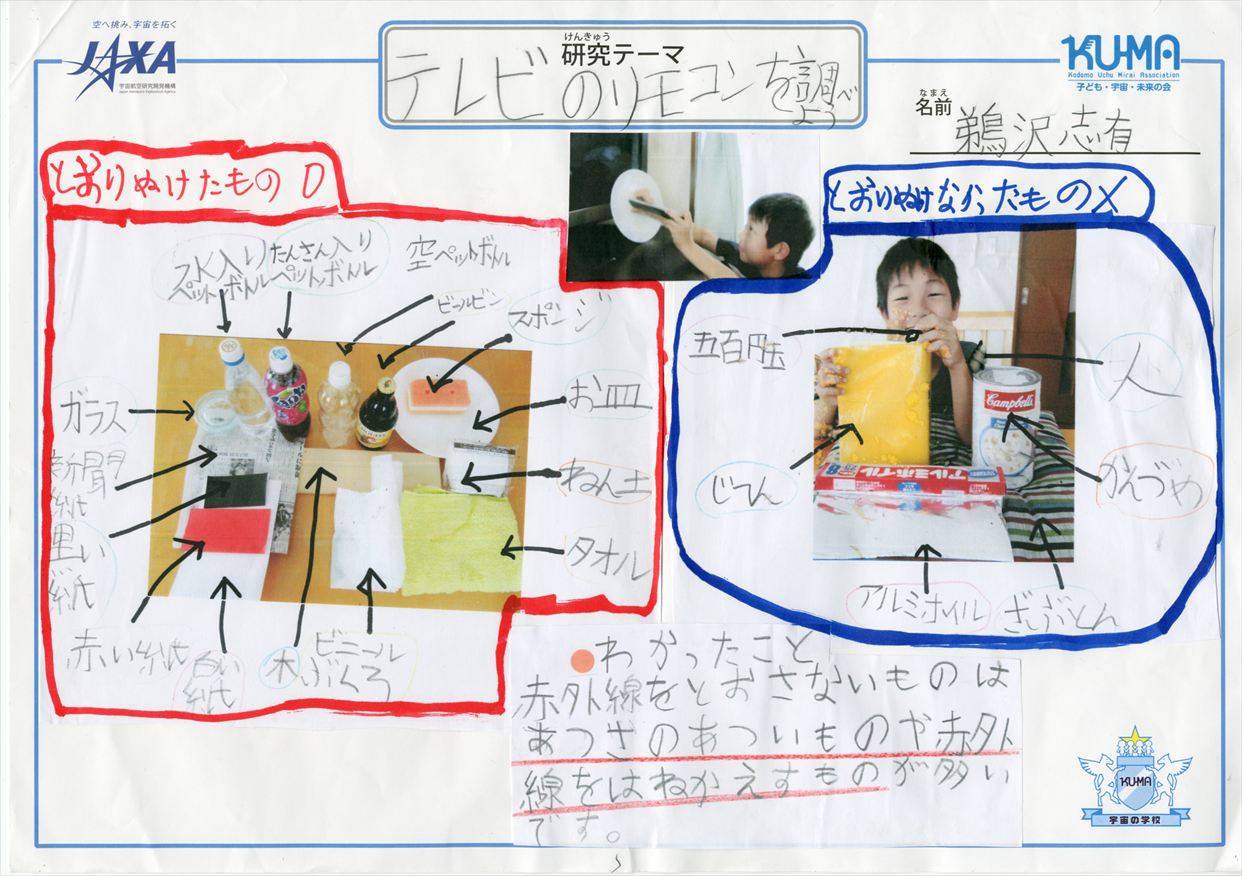 空へ挑み、宇宙を拓く
JAXA
宇宙航空研究開発機構
Japan Aerospace Exploration Agency
けんきゅう
研究テーマ
テレビのリモコンを調べよう
KU-MA
Kodomo Uchu Mirai Association
子ども・宇宙・未来の会
なまえ
名前
鵜沢志有
とおりぬけたもの O
水入りペットボトル
たんさん入りペットボトル
空ペットボトル
ビールビン
スポンジ
ガラス
お皿
新聞紙
ねん土
黒い紙
タオル
赤い紙
白い紙
木
ビニールぶくろ
とおりぬけなかったもの X
五百円玉
人
じてん
かんづめ
Campbell's
アルミホイル
アルミホイル
ざぶとん
わかったこと
赤外線をとおさないものは
あつさのあついものや赤外
線をはねかえすものが多い
です。
KU-MA
宇宙の学校